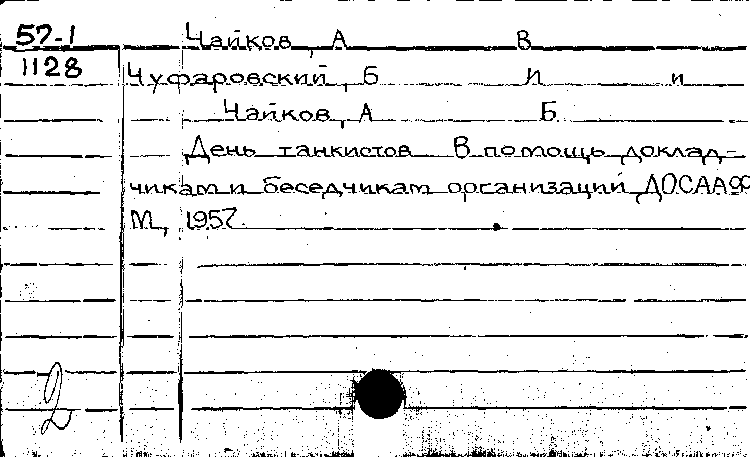 57-1 Чайков, А В
1128 Чуфаровский, Б И и
Чайков, А Б
День танкистов В помощь доклад-
чикам и беседчикам организаций ДОСААФ
М, 1957.
2